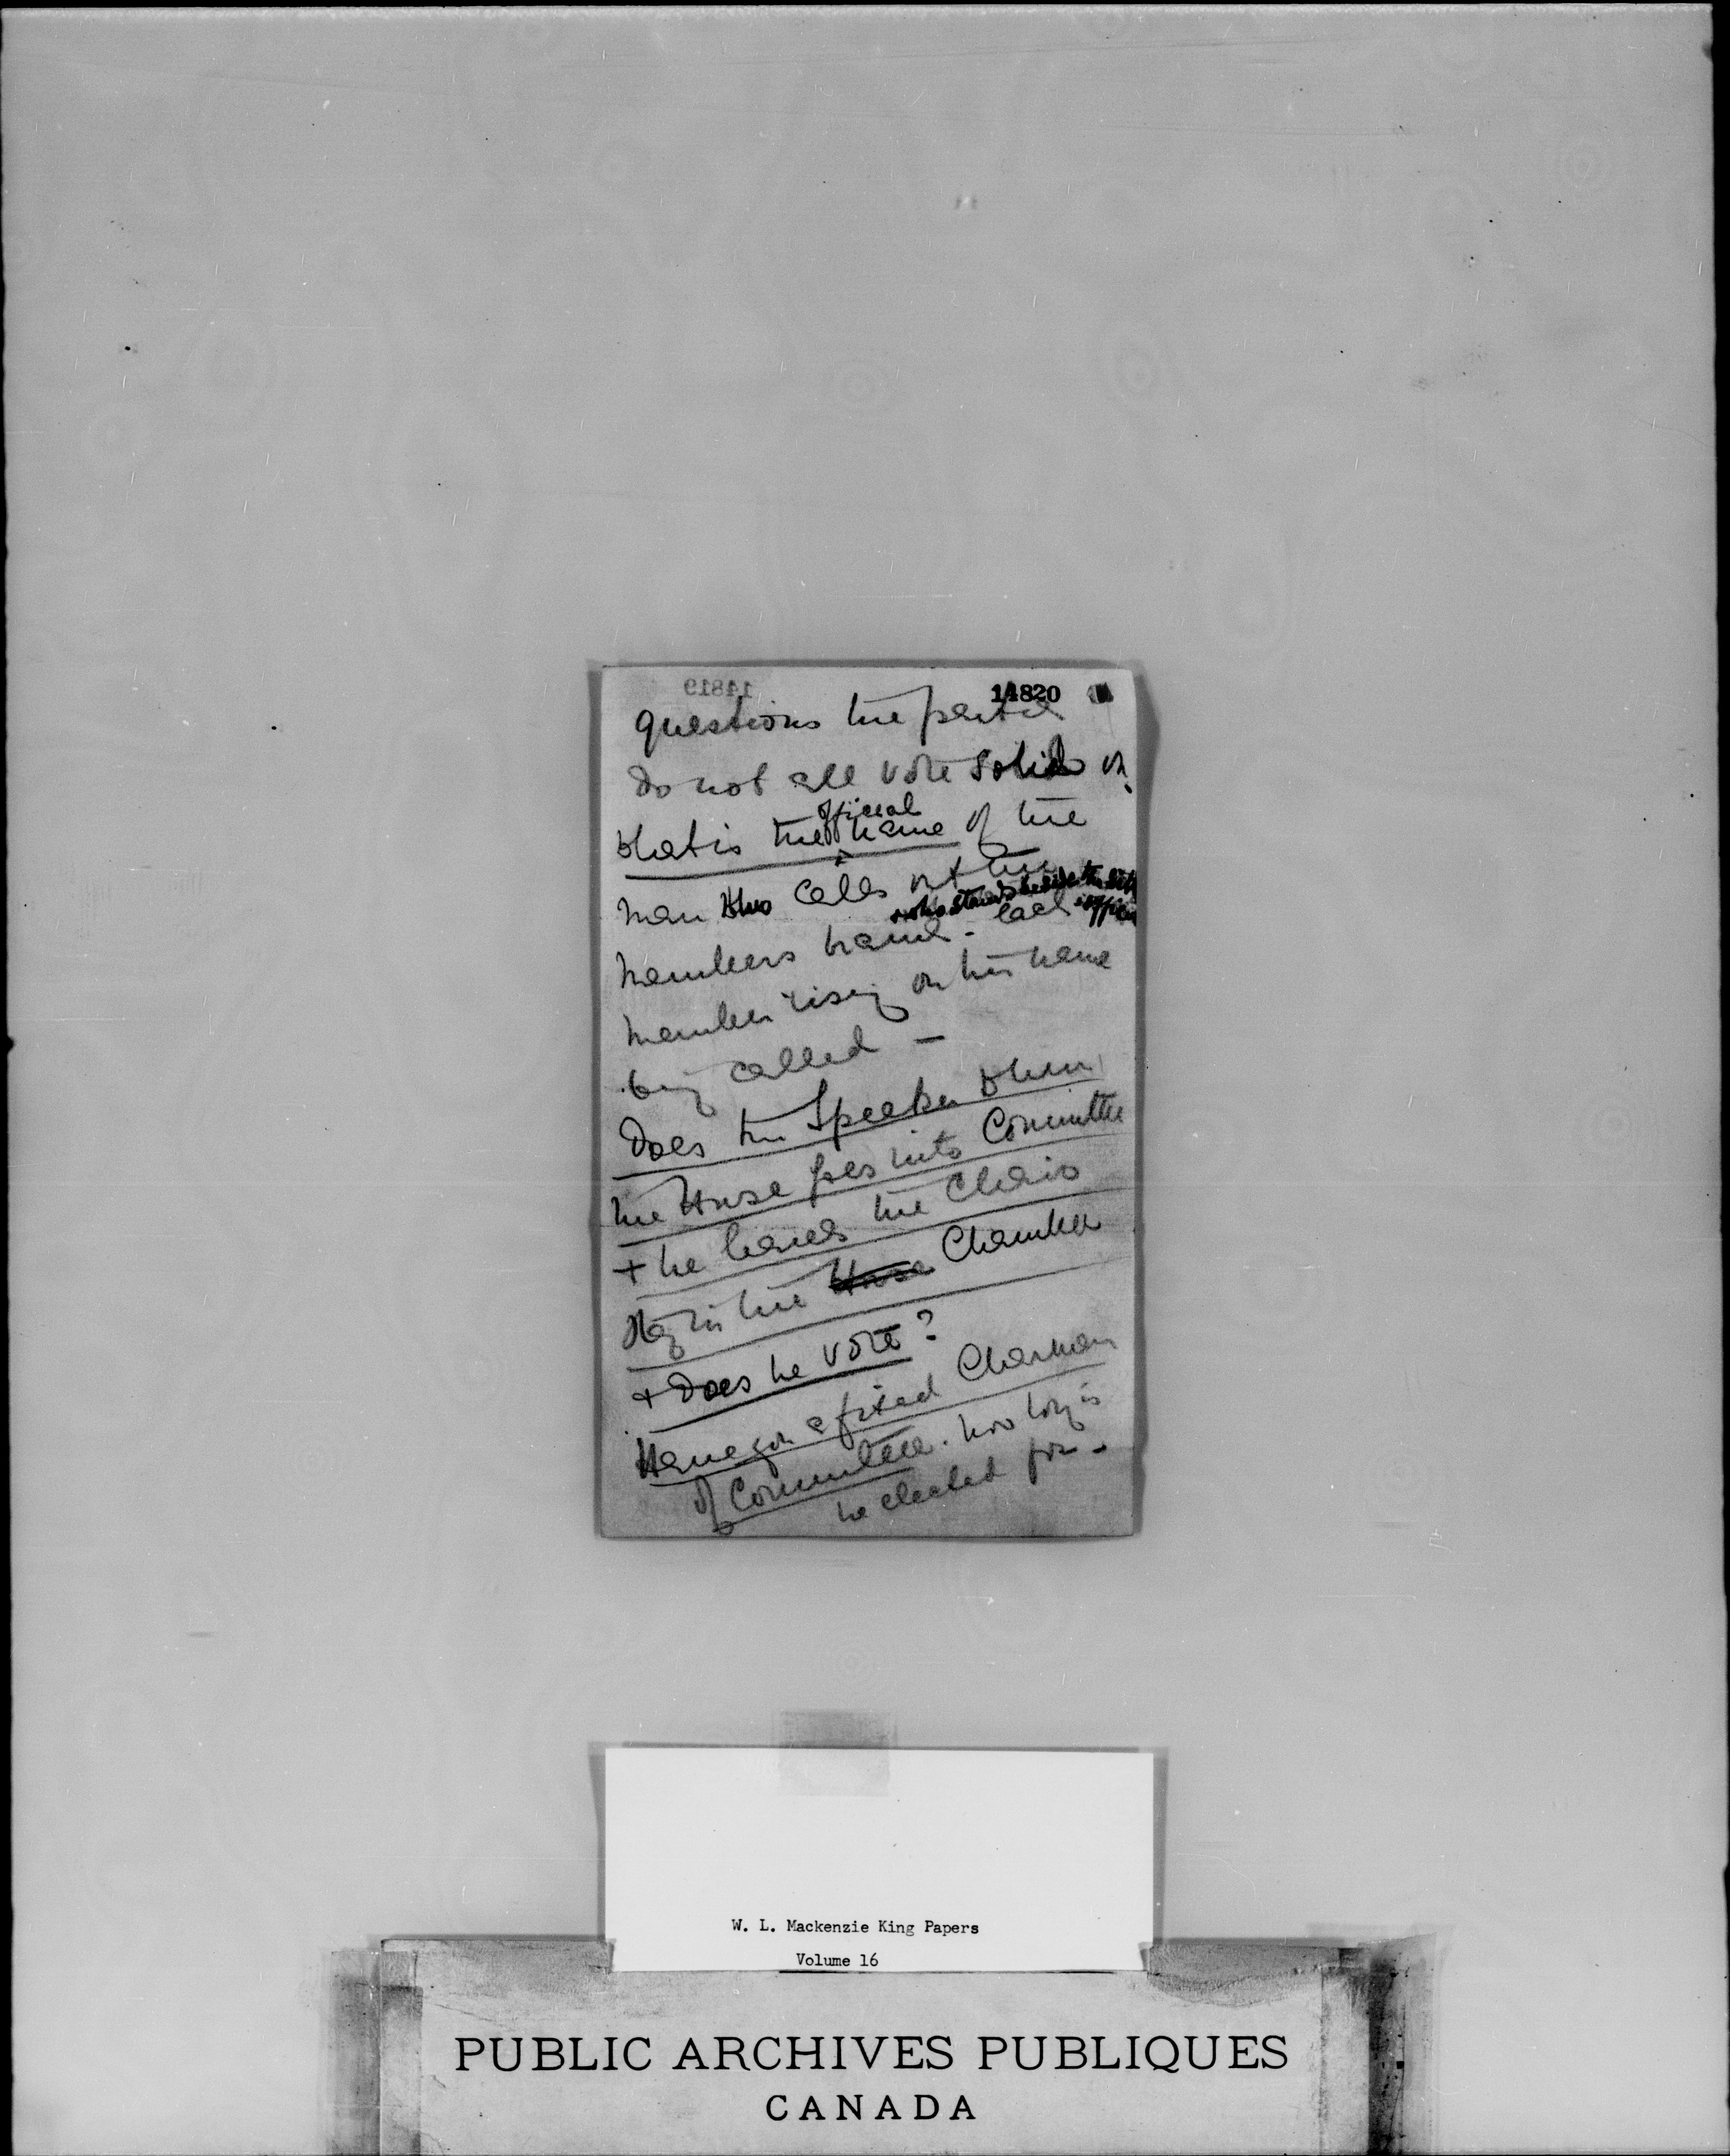 14819
14820
questions the parties
do not all vote solid on.
What is the official name of the
man who calls out the
who stands beside the
members name - each
member rising on his name
being called -
Does the Speaker when
the House goes into Committee
+ he leaves the Chair
stay in the House Chamber
+ Does he vote?
Have you a fixed Chairman
of Committee. how long is
he elected for -
W. L. Mackenzie King Papers
Volume 16
PUBLIC ARCHIVES PUBLIQUES
CANADA